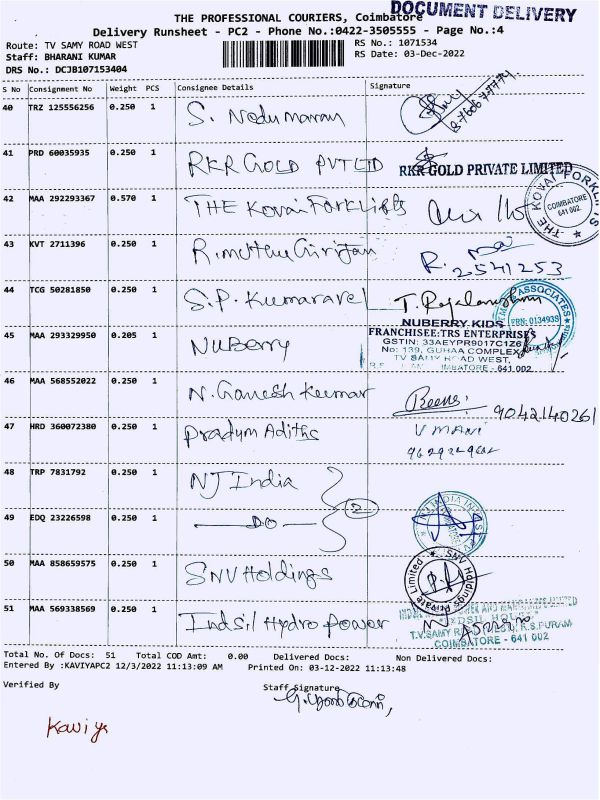 DOCUMENT DELIVERY
THE PROFESSIONAL COURIERS, Coimbatore
Delivery Runsheet - PC2 - Phone No.:0422-3505555 - Page No.:4
Route: TV SAMY ROAD WEST RS No.: 1071534
Staff: BHARANI KUMAR RS Date: 03-Dec-2022
DRS No.: DCJB107153404
S No Consignment No Weight PCS Consignee Details Signature
40 TRZ 125556256 0.250 1 S. Nedumaran
41 PRD 60035935 0.250 1 RKR GOLD PVT LTD RKR GOLD PRIVATE LIMITED
42 MAA 292293367 0.570 1 THE Kovai Forklifts THE KOVAI FORKLIFTS COIMBATORE 641 002.
43 KVT 2711396 0.250 1 R. Muthu Girijan R. 2541253
44 TCG 50281850 0.250 1 S.P. Kumaravel ASSOCIATES FRN: 013493S
45 MAA 293329950 0.205 1 NuBerry NUBERRY KIDS
FRANCHISEE:TRS ENTERPRISES
GSTIN: 33AEYPR9017C1Z6
No: 139, GUHAA COMPLEX
TV SAMY ROAD WEST,
COIMBATORE - 641 002
46 MAA 568552022 0.250 1 N. Ganesh Kumar 9042140261
47 HRD 360072380 0.250 1 Pradyum Adiths V MANI
48 TRP 7831792 0.250 1 NJ India
49 EDQ 23226598 0.250 1 — DO — 2 NJ INDIA INVEST
50 MAA 858659575 0.250 1 SNV Holdings SNV Holdings Private Limited
51 MAA 569338569 0.250 1 Indsil Hydro Power
T.V.SAMY ROAD (WEST), R.S.PURAM
COIMBATORE - 641 002
Total No. Of Docs: 51 Total COD Amt: 0.00 Delivered Docs: Non Delivered Docs:
Entered By :KAVIYAPC2 12/3/2022 11:13:09 AM Printed On: 03-12-2022 11:13:48
Verified By Staff Signature
Kaviya